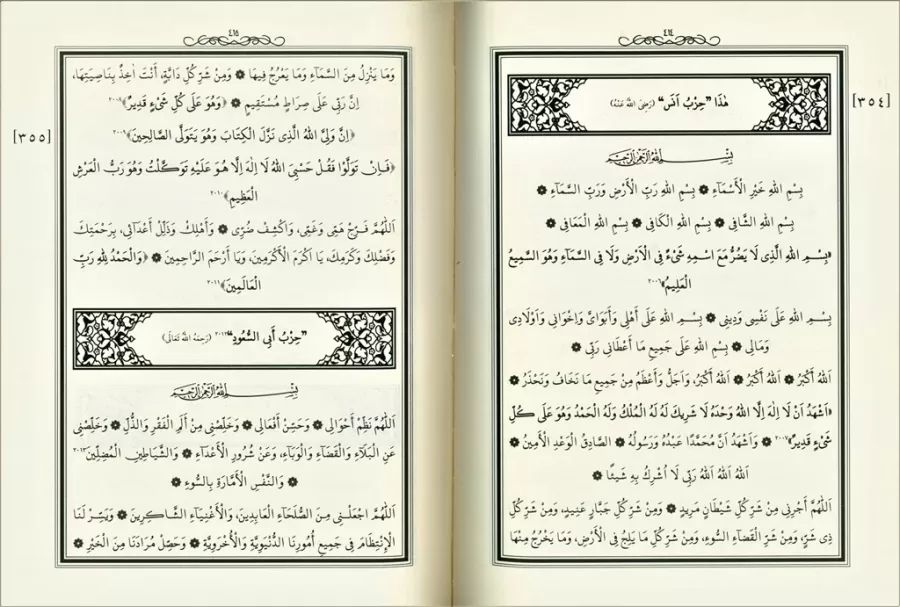 ٤١٤
[٣٥٤]
هٰذَا "حِزْبُ اَنَس" (رَضِيَ اللهُ عَنْهُ)
بِسْمِ اللهِ الرَّحْمٰنِ الرَّحِيمِ
بِسْمِ اللهِ خَيْرِ الْأَسْمَاءِ ۞ بِسْمِ اللهِ رَبِّ الْأَرْضِ وَرَبِّ السَّمَاءِ ۞
بِسْمِ اللهِ الشَّافِي ۞ بِسْمِ اللهِ الْكَافِي ۞ بِسْمِ اللهِ الْمُعَافِي ۞
﴿بِسْمِ اللهِ الَّذِي لَا يَضُرُّ مَعَ اسْمِهِ شَيْءٌ فِي الْاَرْضِ وَلَا فِي السَّمَآءِ وَهُوَ السَّمِيعُ
الْعَلِيمُ﴾٢٠٠٦
بِسْمِ اللهِ عَلَى نَفْسِي وَدِينِي ۞ بِسْمِ اللهِ عَلَى أَهْلِي وَأَبَوَايَّ وَاِخْوَانِي وَاَوْلَادِي
وَمَالِي ۞ بِسْمِ اللهِ عَلَى جَمِيعِ مَا أَعْطَانِي رَبِّي ۞
اَللهُ أَكْبَرُ ۞ اَللهُ أَكْبَرُ ۞ اَللهُ أَكْبَرُ، وَاَجَلُّ وَأَعْظَمُ مِنْ جَمِيعِ مَا نَخَافُ وَنَحْذَرُ ۞
﴿اَشْهَدُ اَنْ لَا اِلٰهَ اِلَّا اللهُ وَحْدَهُ لَا شَرِيكَ لَهُ لَهُ الْمُلْكُ وَلَهُ الْحَمْدُ وَهُوَ عَلَى كُلِّ
شَيْءٍ قَدِيرٌ﴾٢٠٠٧ ۞ وَاَشْهَدُ أَنَّ مُحَمَّدًا عَبْدُهُ وَرَسُولُهُ ۞ الصَّادِقُ الْوَعْدِ الْأَمِينُ ۞
اَللهُ اَللهُ اَللهُ رَبِّي لَا اُشْرِكُ بِهِ شَيْئًا ۞
اَللّٰهُمَّ أَجِرْنِي مِنْ شَرِّ كُلِّ شَيْطَانٍ مَرِيدٍ ۞ وَمِنْ شَرِّ كُلِّ جَبَّارٍ عَنِيدٍ، وَمِنْ شَرِّ كُلِّ
ذِي شَرٍّ، وَمِنْ شَرِّ الْقَضَاءِ السُّوءِ، وَمِنْ شَرِّ كُلِّ مَا يَلِجُ فِي الْأَرْضِ، وَمَا يَخْرُجُ مِنْهَا
٤١٥
[٣٥٥]
وَمَا يَنْزِلُ مِنَ السَّمَاءِ وَمَا يَعْرُجُ فِيهَا ۞ وَمِنْ شَرِّ كُلِّ دَابَّةٍ، أَنْتَ اٰخِذٌ بِنَاصِيَتِهَا،
اِنَّ رَبِّي عَلَى صِرَاطٍ مُسْتَقِيمٍ ۞ ﴿وَهُوَ عَلَى كُلِّ شَيْءٍ قَدِيرٌ﴾٢٠٠٨
﴿اِنَّ وَلِيَّ اللهُ الَّذِي نَزَّلَ الْكِتَابَ وَهُوَ يَتَوَلَّى الصَّالِحِينَ﴾٢٠٠٩
﴿فَاِنْ تَوَلَّوْا فَقُلْ حَسْبِيَ اللهُ لَا اِلٰهَ اِلَّا هُوَ عَلَيْهِ تَوَكَّلْتُ وَهُوَ رَبُّ الْعَرْشِ
الْعَظِيمِ﴾٢٠١٠
اَللّٰهُمَّ فَرِّجْ هَمِّي وَغَمِّي، وَاكْشِفْ ضُرِّي ۞ وَأَهْلِكْ وَذَلِّلْ أَعْدَائِي، بِرَحْمَتِكَ
وَفَضْلِكَ وَكَرَمِكَ، يَا اَكْرَمَ الْأَكْرَمِينَ، وَيَا أَرْحَمَ الرَّاحِمِينَ ۞ ﴿وَالْحَمْدُ لِلّٰهِ رَبِّ
الْعَالَمِينَ﴾٢٠١١
"حِزْبُ أَبِي السُّعُودِ"٢٠١٢ (رَحِمَهُ اللهُ تَعَالَى)
بِسْمِ اللهِ الرَّحْمٰنِ الرَّحِيمِ
اَللّٰهُمَّ نَظِّمْ أَحْوَالِي ۞ وَحَسِّنْ أَفْعَالِي ۞ وَخَلِّصْنِي مِنْ أَلَمِ الْفَقْرِ وَالذُّلِّ ۞ وَخَلِّصْنِي
عَنِ الْبَلَاءِ وَالْقَضَاءِ وَالْوَبَاءِ، وَعَنْ شُرُورِ الْأَعْدَاءِ ۞ وَالشَّيَاطِينِ الْمُضِلِّينَ٢٠١٣
۞ وَالنَّفْسِ الْأَمَّارَةِ بِالسُّوءِ ۞
اَللّٰهُمَّ اجْعَلْنِي مِنَ الصُّلَحَاءِ الْعَابِدِينَ، وَالْأَغْنِيَاءِ الشَّاكِرِينَ ۞ وَيَسِّرْ لَنَا
الْاِنْتِظَامَ فِي جَمِيعِ أُمُورِنَا الدُّنْيَوِيَّةِ وَالْأُخْرَوِيَّةِ ۞ وَحَصِّلْ مُرَادَنَا مِنَ الْخَيْرِ ۞